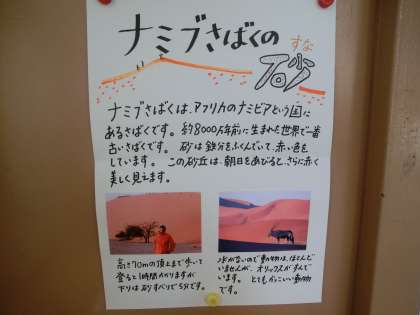 ナミブさばくの
すな
砂
ナミブさばくは、アフリカのナミビアという国に
あるさばくです。約8000万年前に生まれた世界で一番
古いさばくです。砂は鉄分をふくんでいて、赤い色を
しています。この砂丘は、朝日をあびると、さらに赤く
美しく見えます。
高さ70mの頂上まで歩いて
登ると1時間かかりますが
下りは砂すべりで5分です。
水がないので動物は、ほとんど
いませんが、オリックスがすんで
います。とてもかっこいい動物
です。